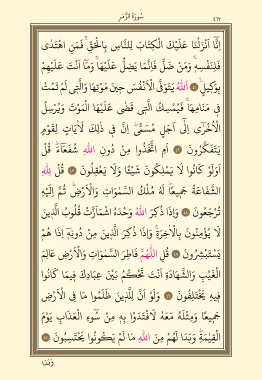 سُورَةُ الزُّمَرِ ٤٦٢
إِنَّا أَنْزَلْنَا عَلَيْكَ الْكِتَابَ لِلنَّاسِ بِالْحَقِّ فَمَنِ اهْتَدَى
فَلِنَفْسِهِ وَمَنْ ضَلَّ فَإِنَّمَا يَضِلُّ عَلَيْهَا وَمَا أَنْتَ عَلَيْهِمْ
بِوَكِيلٍ ﴿٤١﴾ اَللّٰهُ يَتَوَفَّى الْأَنْفُسَ حِينَ مَوْتِهَا وَالَّتِي لَمْ تَمُتْ
فِي مَنَامِهَا فَيُمْسِكُ الَّتِي قَضَى عَلَيْهَا الْمَوْتَ وَيُرْسِلُ
الْأُخْرَى إِلَى أَجَلٍ مُسَمًّى إِنَّ فِي ذَلِكَ لَآيَاتٍ لِقَوْمٍ
يَتَفَكَّرُونَ ﴿٤٢﴾ أَمِ اتَّخَذُوا مِنْ دُونِ اللّٰهِ شُفَعَاءَ قُلْ
أَوَلَوْ كَانُوا لَا يَمْلِكُونَ شَيْئًا وَلَا يَعْقِلُونَ ﴿٤٣﴾ قُلْ لِلّٰهِ
الشَّفَاعَةُ جَمِيعًا لَهُ مُلْكُ السَّمٰوَاتِ وَالْأَرْضِ ثُمَّ إِلَيْهِ
تُرْجَعُونَ ﴿٤٤﴾ وَإِذَا ذُكِرَ اللّٰهُ وَحْدَهُ اشْمَأَزَّتْ قُلُوبُ الَّذِينَ
لَا يُؤْمِنُونَ بِالْآخِرَةِ وَإِذَا ذُكِرَ الَّذِينَ مِنْ دُونِهِ إِذَا هُمْ
يَسْتَبْشِرُونَ ﴿٤٥﴾ قُلِ اللّٰهُمَّ فَاطِرَ السَّمٰوَاتِ وَالْأَرْضِ عَالِمَ
الْغَيْبِ وَالشَّهَادَةِ أَنْتَ تَحْكُمُ بَيْنَ عِبَادِكَ فِيمَا كَانُوا
فِيهِ يَخْتَلِفُونَ ﴿٤٦﴾ وَلَوْ أَنَّ لِلَّذِينَ ظَلَمُوا مَا فِي الْأَرْضِ
جَمِيعًا وَمِثْلَهُ مَعَهُ لَافْتَدَوْا بِهِ مِنْ سُوءِ الْعَذَابِ يَوْمَ
الْقِيٰمَةِ وَبَدَا لَهُمْ مِنَ اللّٰهِ مَا لَمْ يَكُونُوا يَحْتَسِبُونَ ﴿٤٧﴾
وَبَدَا